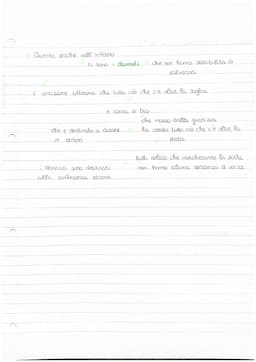 Questa porta nell'inferno
ci sono i dannati che non hanno possibilità di
salvezza
L'iscrizione afferma che tutto ciò che c'è oltre la soglia
è opera di Dio
che mosso dalla giustizia
che è destinato a durare ha creato tutto ciò che c'è oltre la
in eterno porta
tutti coloro che varcheranno la porta
i dannati sono destinati non hanno alcuna speranza di uscire
alla sofferenza eterna